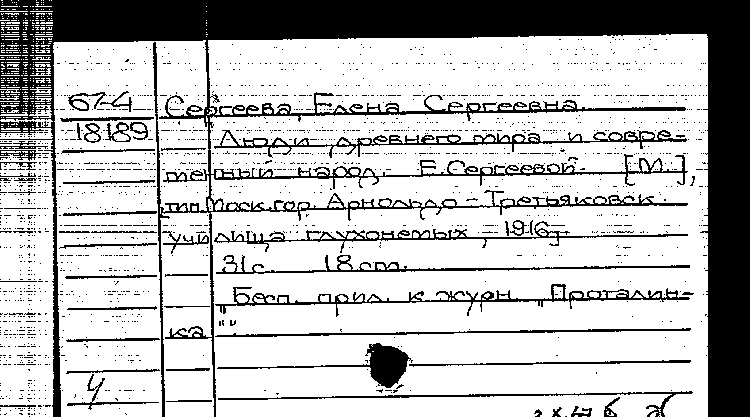 67-4
18189
Сергеева, Елена Сергеевна.
Люди древнего мира и совре-
менный народ. Е. Сергеевой. [М.],
[тип. Моск. гор. Арнольдо-Третьяковск.
училища глухонемых, 1916].
31 с. 18 см.
Бесп. прил. к журн. "Проталин-
ка".
4